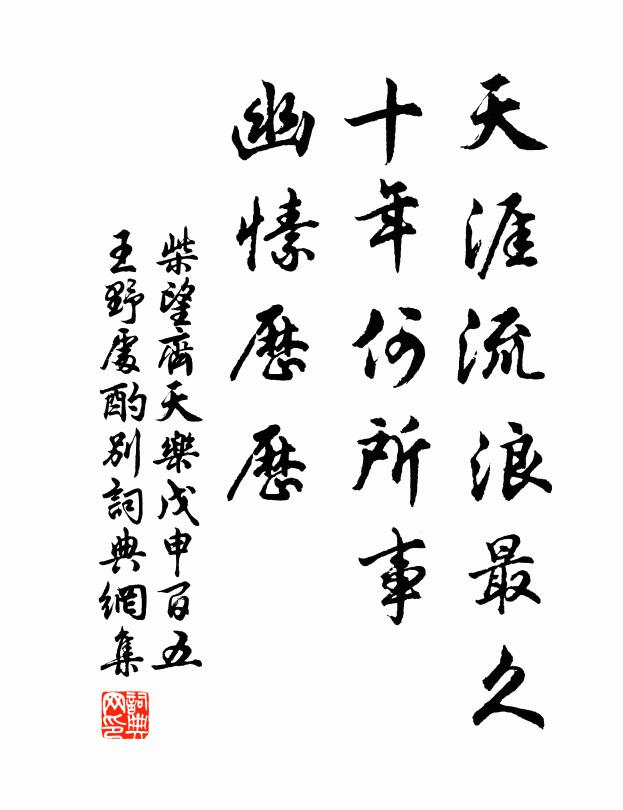 天涯流浪最久
十年何所事
幽愫歷歷
柴望齊天樂戊申百五
王野處酌別詞典網集
詞典网印